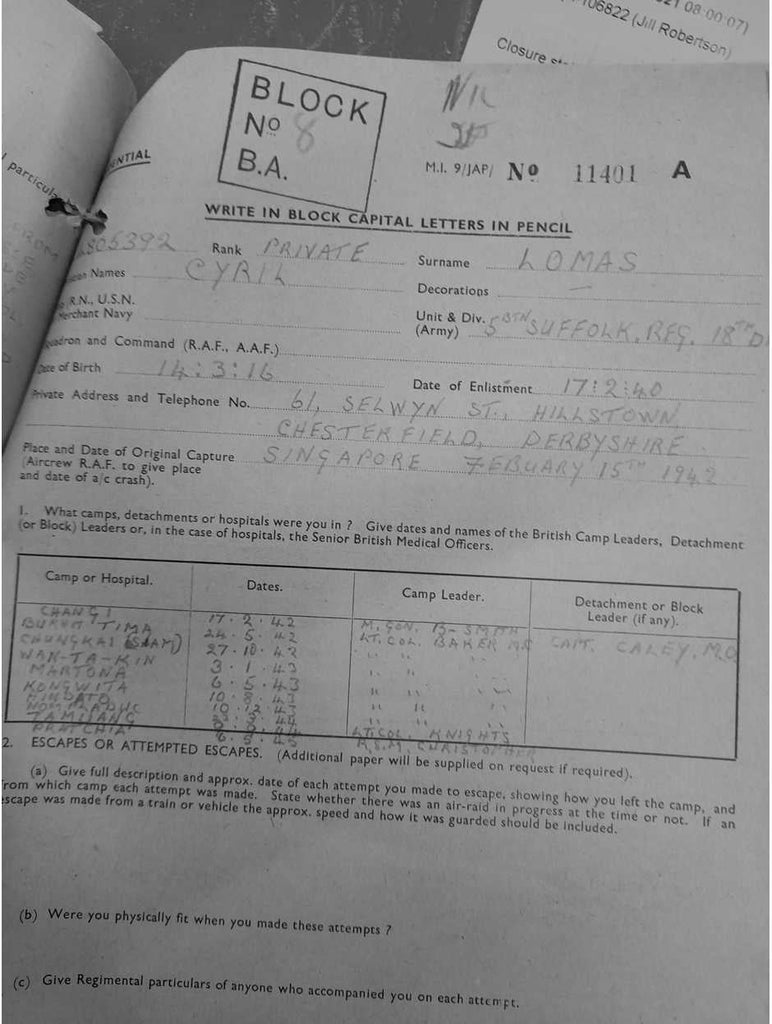 21 08:00:07)
106822 (Jill Robertson)
Closure
particul
ENTIAL
BLOCK
No 8
B.A.
NIL
M.I. 9/JAP/ No 11401 A
WRITE IN BLOCK CAPITAL LETTERS IN PENCIL
805392 Rank PRIVATE Surname LOMAS
Names CYRIL Decorations —
R.N., U.S.N.
Merchant Navy
Unit & Div. 5 BTN SUFFOLK. REG. 18TH D
(Army)
uadron and Command (R.A.F., A.A.F.)
Date of Birth 14:3:16 Date of Enlistment 17:2:40
Private Address and Telephone No. 61, SELWYN ST., HILLSTOWN,
CHESTERFIELD, DERBYSHIRE
Place and Date of Original Capture SINGAPORE FEBUARY 15TH 1942
(Aircrew R.A.F. to give place
and date of a/c crash).
1. What camps, detachments or hospitals were you in ? Give dates and names of the British Camp Leaders, Detachment
(or Block) Leaders or, in the case of hospitals, the Senior British Medical Officers.
Camp or Hospital. Dates. Camp Leader. Detachment or Block
Leader (if any).
CHANGI 17.2.42 M. GEN. B-SMITH
BUKUM TIMA 24.5.42 LT. COL. BAKER CAPT. CALEY. M.O
CHUNGKAI (SIAM) 27.10.42 " " "
WAN-TA-KIN 3.1.43 " " "
MARTONA 6.5.43 " " "
KONGWITA 10.8.43 " " "
10.12.43 " " "
TAMUANG LT. COL. KNIGHTS
PRATCHIA R.S.M. CHRISTOPHER
2. ESCAPES OR ATTEMPTED ESCAPES. (Additional paper will be supplied on request if required).
(a) Give full description and approx. date of each attempt you made to escape, showing how you left the camp, and
from which camp each attempt was made. State whether there was an air-raid in progress at the time or not. If an
escape was made from a train or vehicle the approx. speed and how it was guarded should be included.
(b) Were you physically fit when you made these attempts ?
(c) Give Regimental particulars of anyone who accompanied you on each attempt.